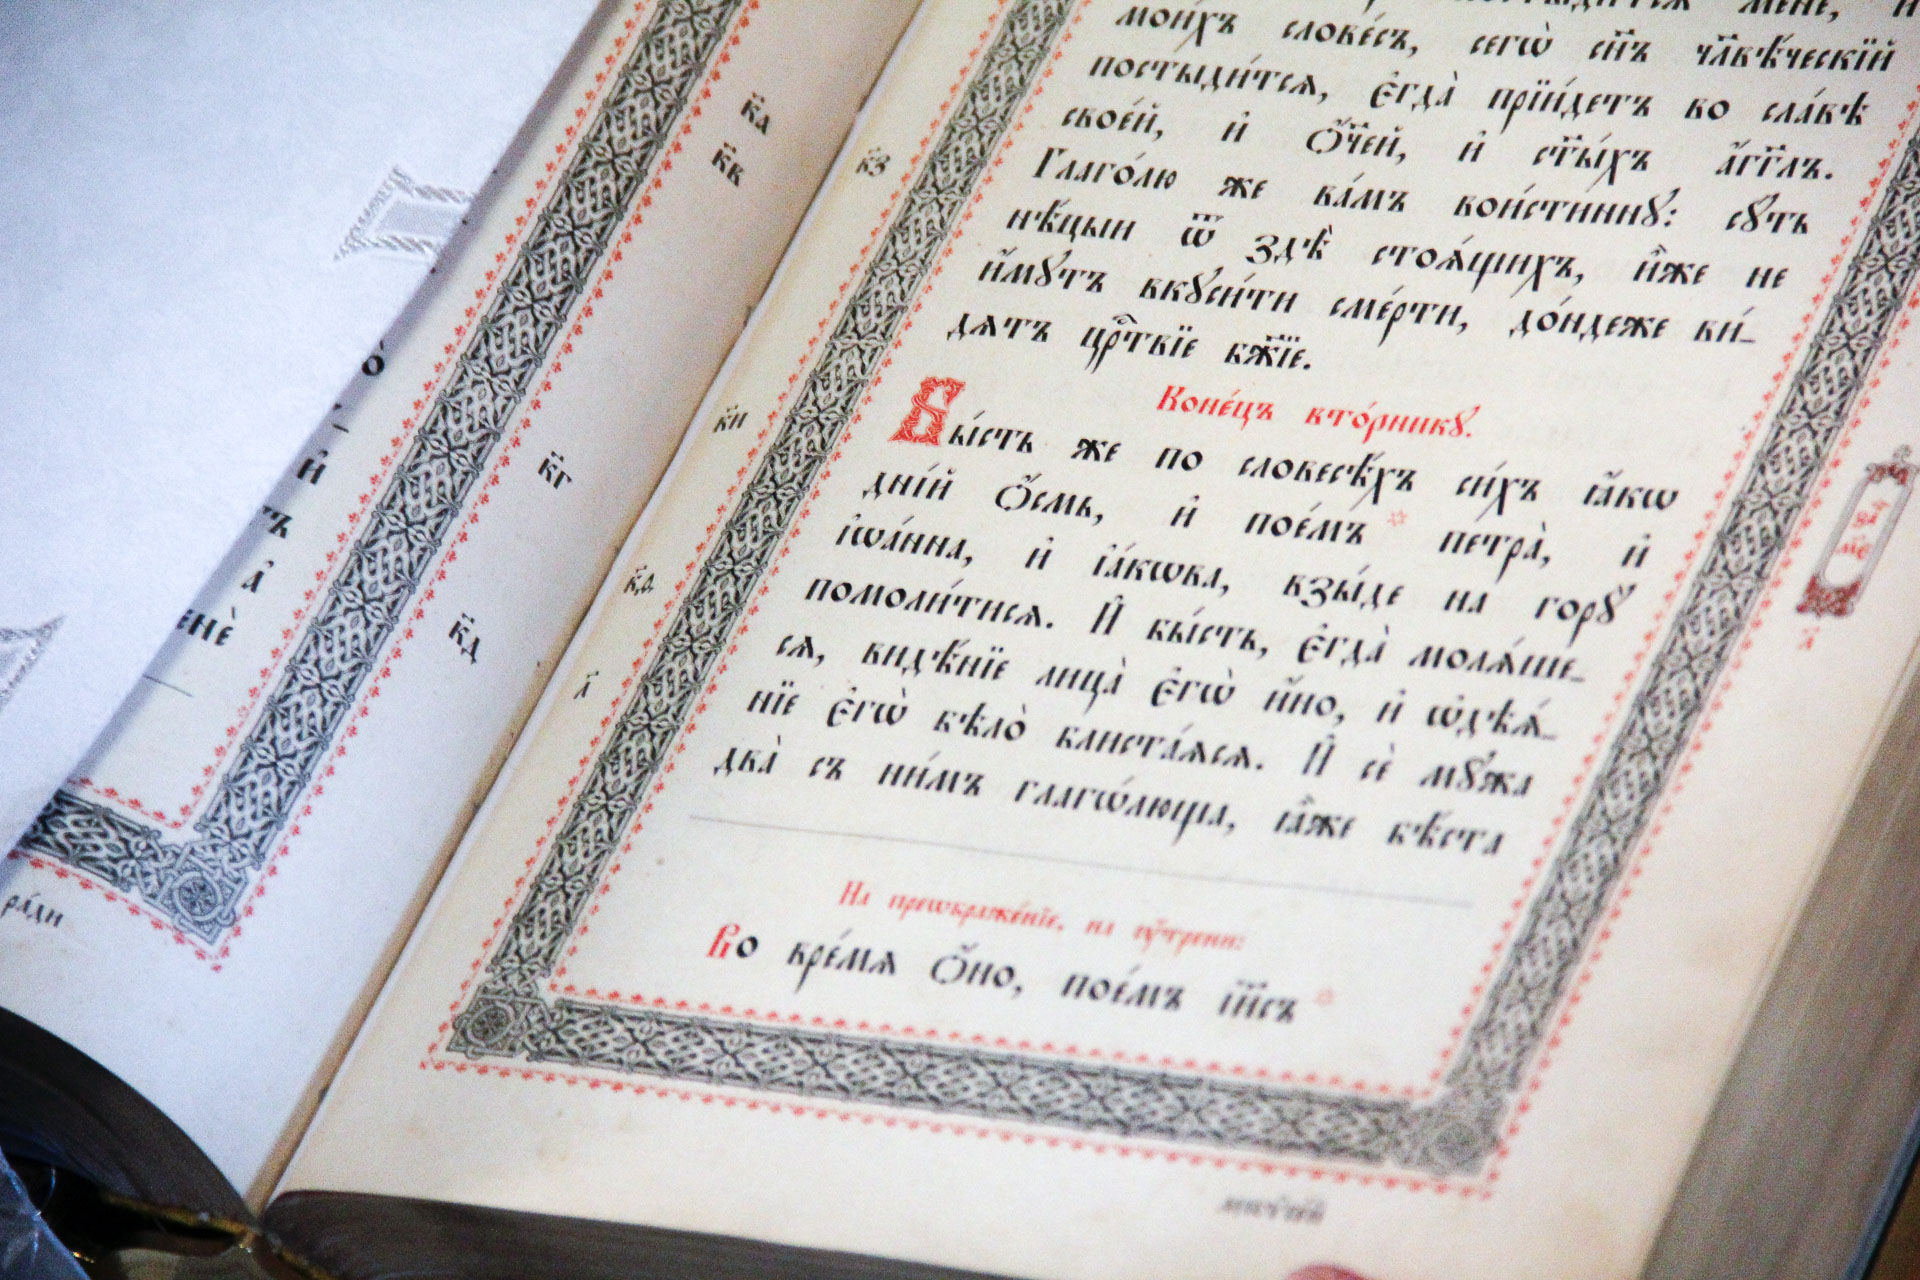 о҆́
и҆
тъ
а҆́
енѐ
ра́ди
к҃а
к҃в
к҃г
к҃д
мене,
мои́хъ слове́съ, сегѡ̀ сн҃ъ чл҃вѣ́ческїй
постыди́тсѧ, є҆гда̀ прїи́детъ во сла́вѣ
свое́й, и҆ ѻ҆́ч҃ей, и҆ ст҃ы́хъ а҆́гг҃лъ.
к҃з Глаго́лю же ва́мъ вои́стиннꙋ: сꙋ́ть
нѣ́цыи ѿ здѣ̀ стоѧ́щихъ, и҆̀же не
и҆́мꙋтъ вкꙋси́ти сме́рти, до́ндеже ви́_
дѧтъ црⷭ҇твїе бж҃їе.
Коне́цъ вто́рникꙋ.
к҃и Бы́сть же по словесѣ́хъ си́хъ ꙗ҆́кѡ
дні́й ѻ҆́смь, и҆ пое́мъ петра̀, и҆
і҆ѡа́нна, и҆ і҆а́кѡва, взы́де на горꙋ̀
к҃ѳ помоли́тисѧ. И҆ бы́сть, є҆гда̀ молѧ́ше_
сѧ, видѣ́нїе лица̀ є҆гѡ̀ и҆́но, и҆ ѡ҆дѣѧ́_
л҃ нїе є҆гѡ̀ бѣло̀ блиста́ѧсѧ. И҆ сѐ мꙋ̑жа
два̀ съ ни́мъ глаго́люща, ꙗ҆̀же бѣ́ста
На преѡбраже́нїе, на ᲂу҆́трени:
Во вре́мѧ ѻ҆́но, пое́мъ і҆и҃съ
мѡѷсе́й